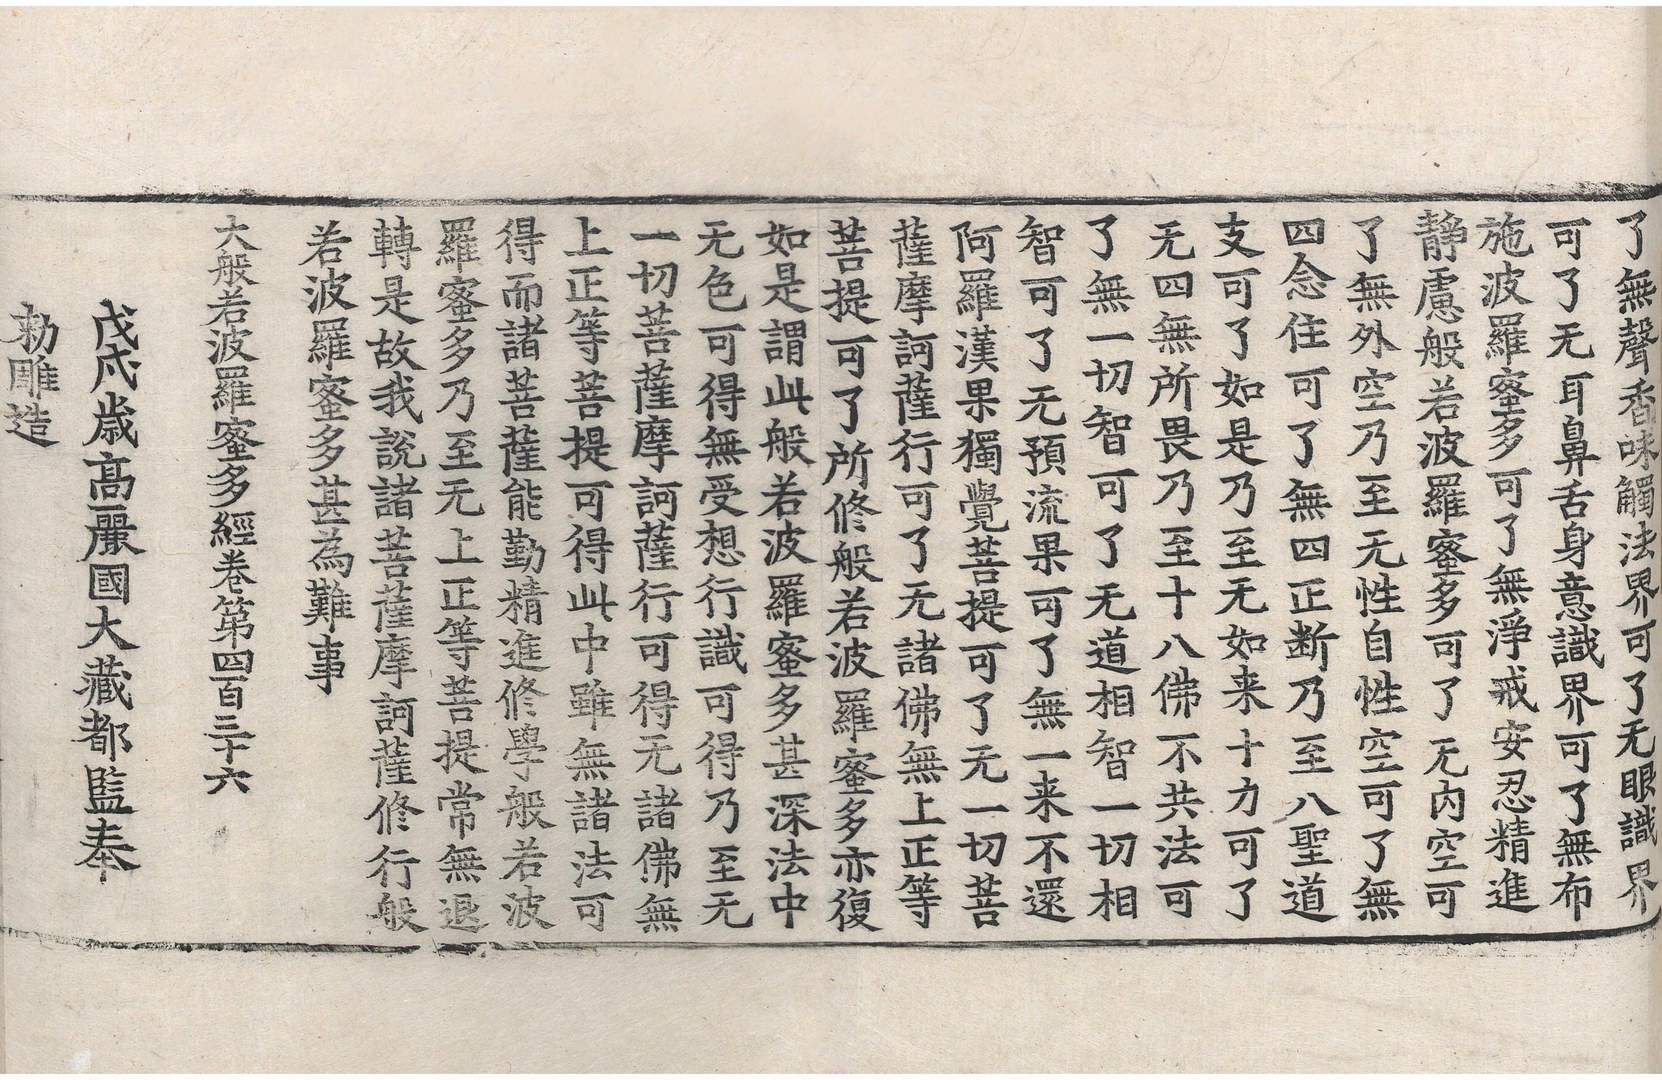 了無聲香味觸法界可了无眼識界
可了无耳鼻舌身意識界可了無布
施波羅蜜多可了無淨戒安忍精進
静慮般若波羅蜜多可了无內空可
了無外空乃至无性自性空可了無
四念住可了無四正断乃至八聖道
支可了如是乃至无如来十力可了
无四無所畏乃至十八佛不共法可
了無一切智可了无道相智一切相
智可了无預流果可了無一来不還
阿羅漢果獨覺菩提可了无一切菩
薩摩訶薩行可了无諸佛無上正等
菩提可了所修般若波羅蜜多亦復
如是謂此般若波羅蜜多甚深法中
无色可得無受想行識可得乃至无
一切菩薩摩訶薩行可得无諸佛無
上正等菩提可得此中雖無諸法可
得而諸菩薩能勤精進修學般若波
羅蜜多乃至无上正等菩提常無退
轉是故我說諸菩薩摩訶薩修行般
若波羅蜜多甚為難事
大般若波羅蜜多經卷第四百三十六
戊戌歲高麗國大藏都監奉
勅雕造